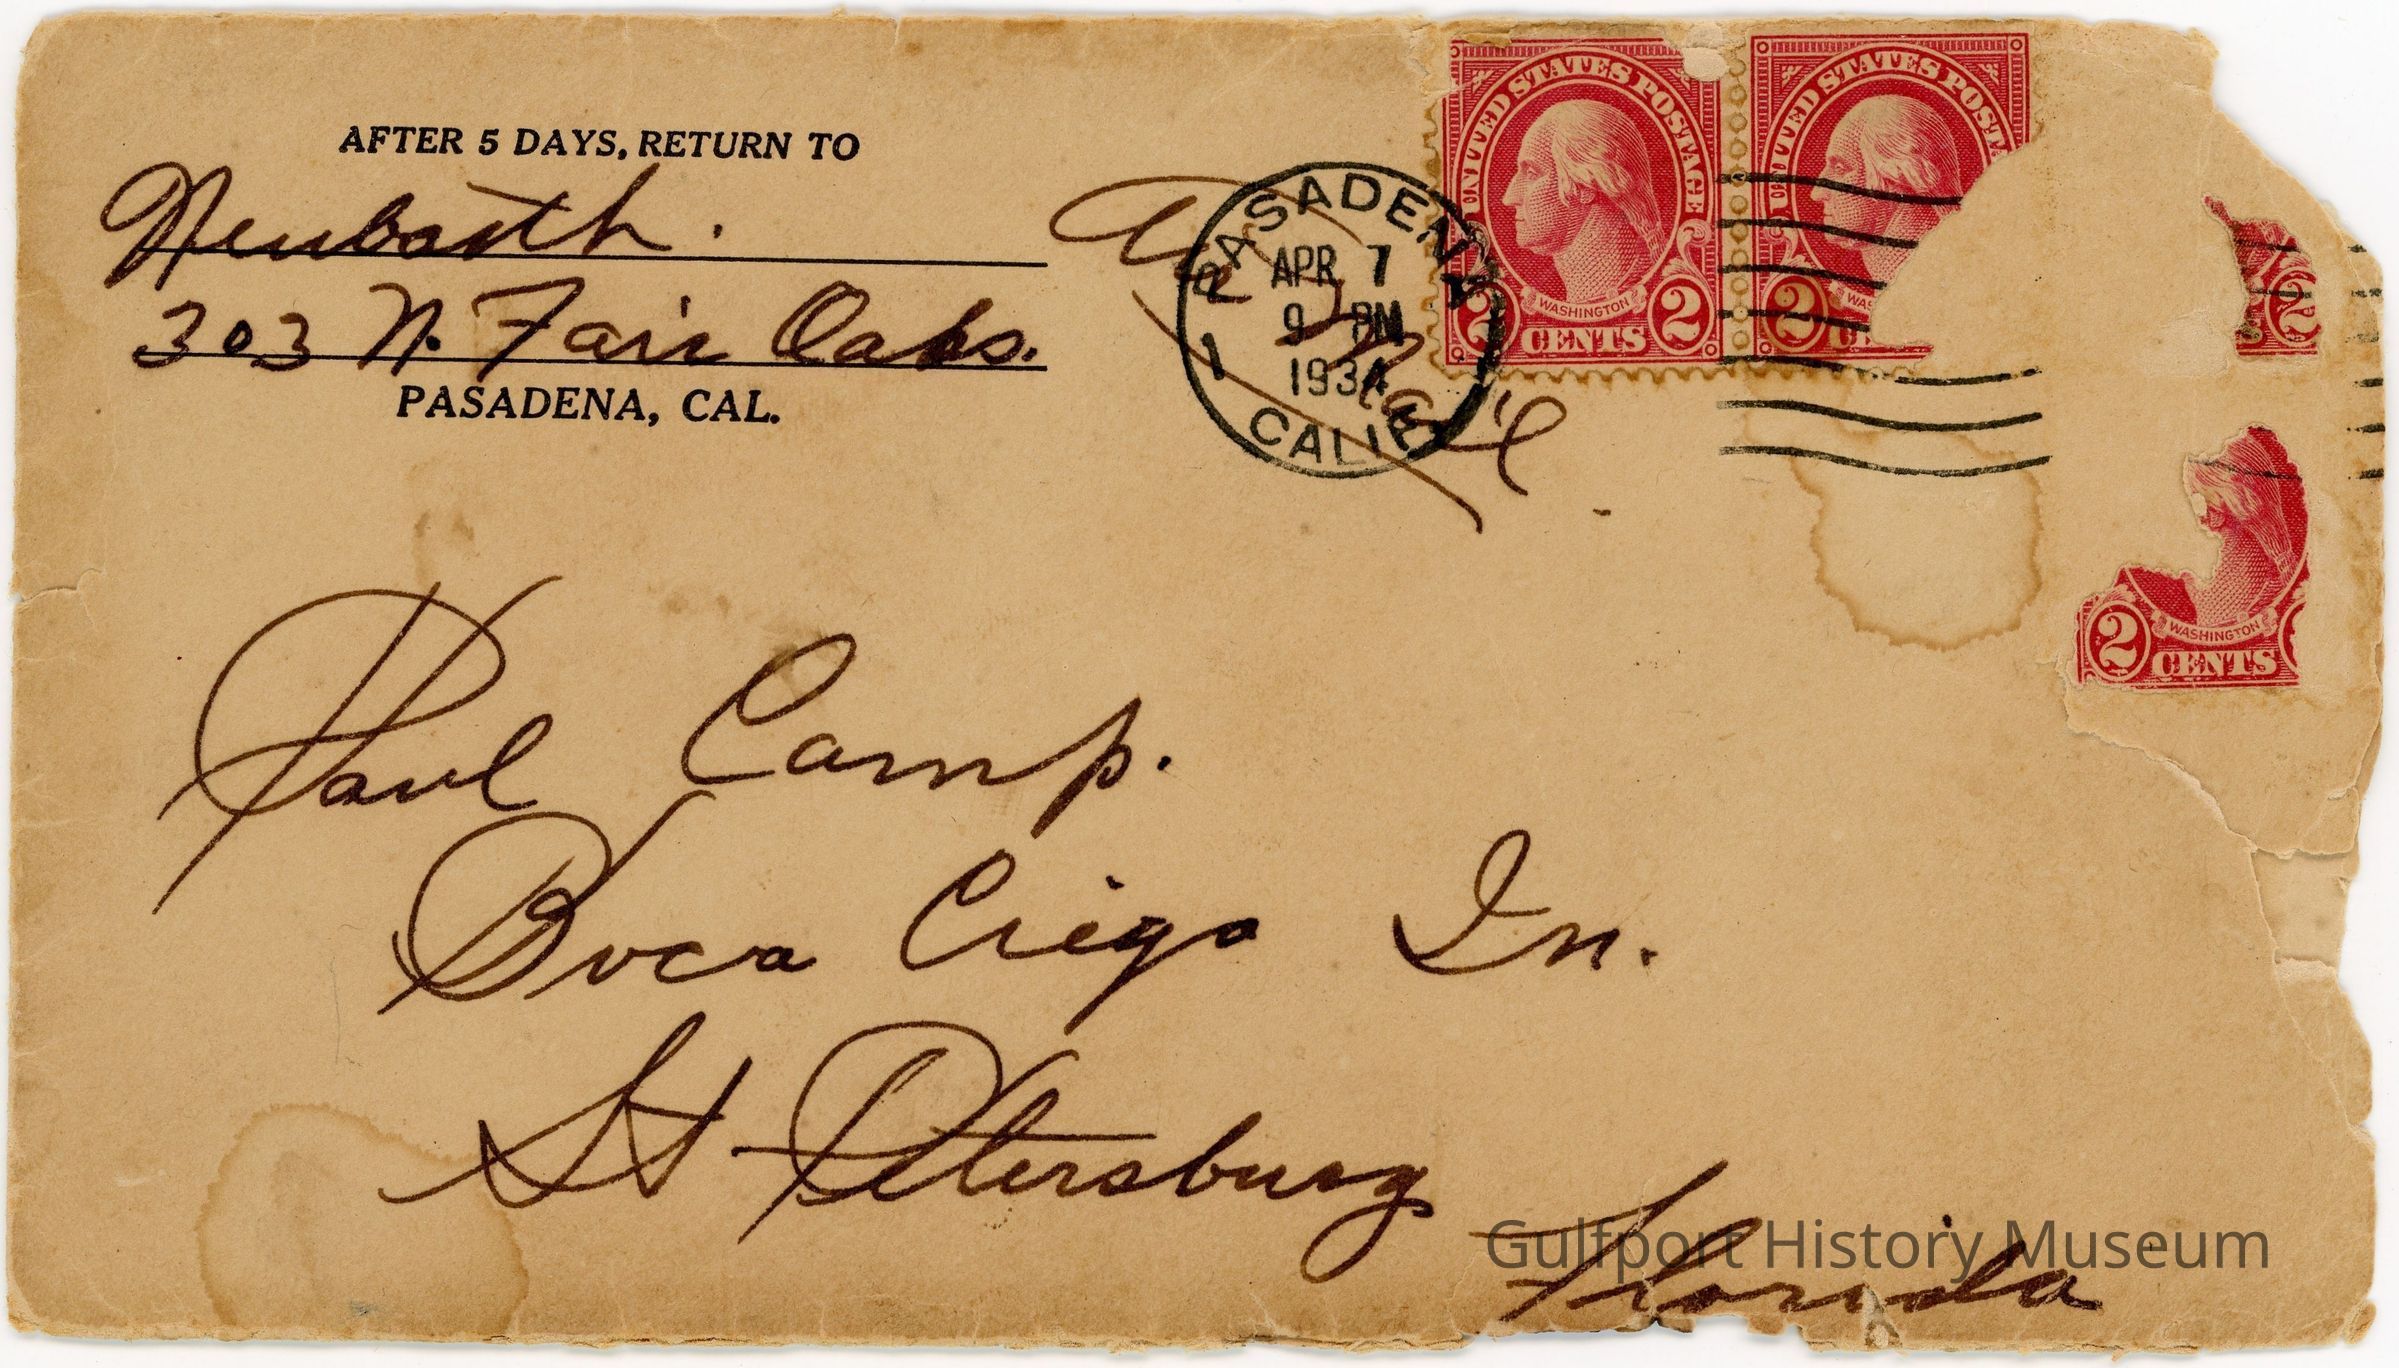 AFTER 5 DAYS, RETURN TO
Neubarth.
303 N. Fair Oaks.
PASADENA, CAL.
Air Mail
PASADENA
APR 7
9 PM
1934
1
CALIF.
UNITED STATES POSTAGE
WASHINGTON
2 CENTS 2
UNITED STATES POST
WAS
2 CE
2
2 CENTS
WASHINGTON
Paul Camp.
Boca Ciega In.
St Petersburg
Florida
Gulfport History Museum